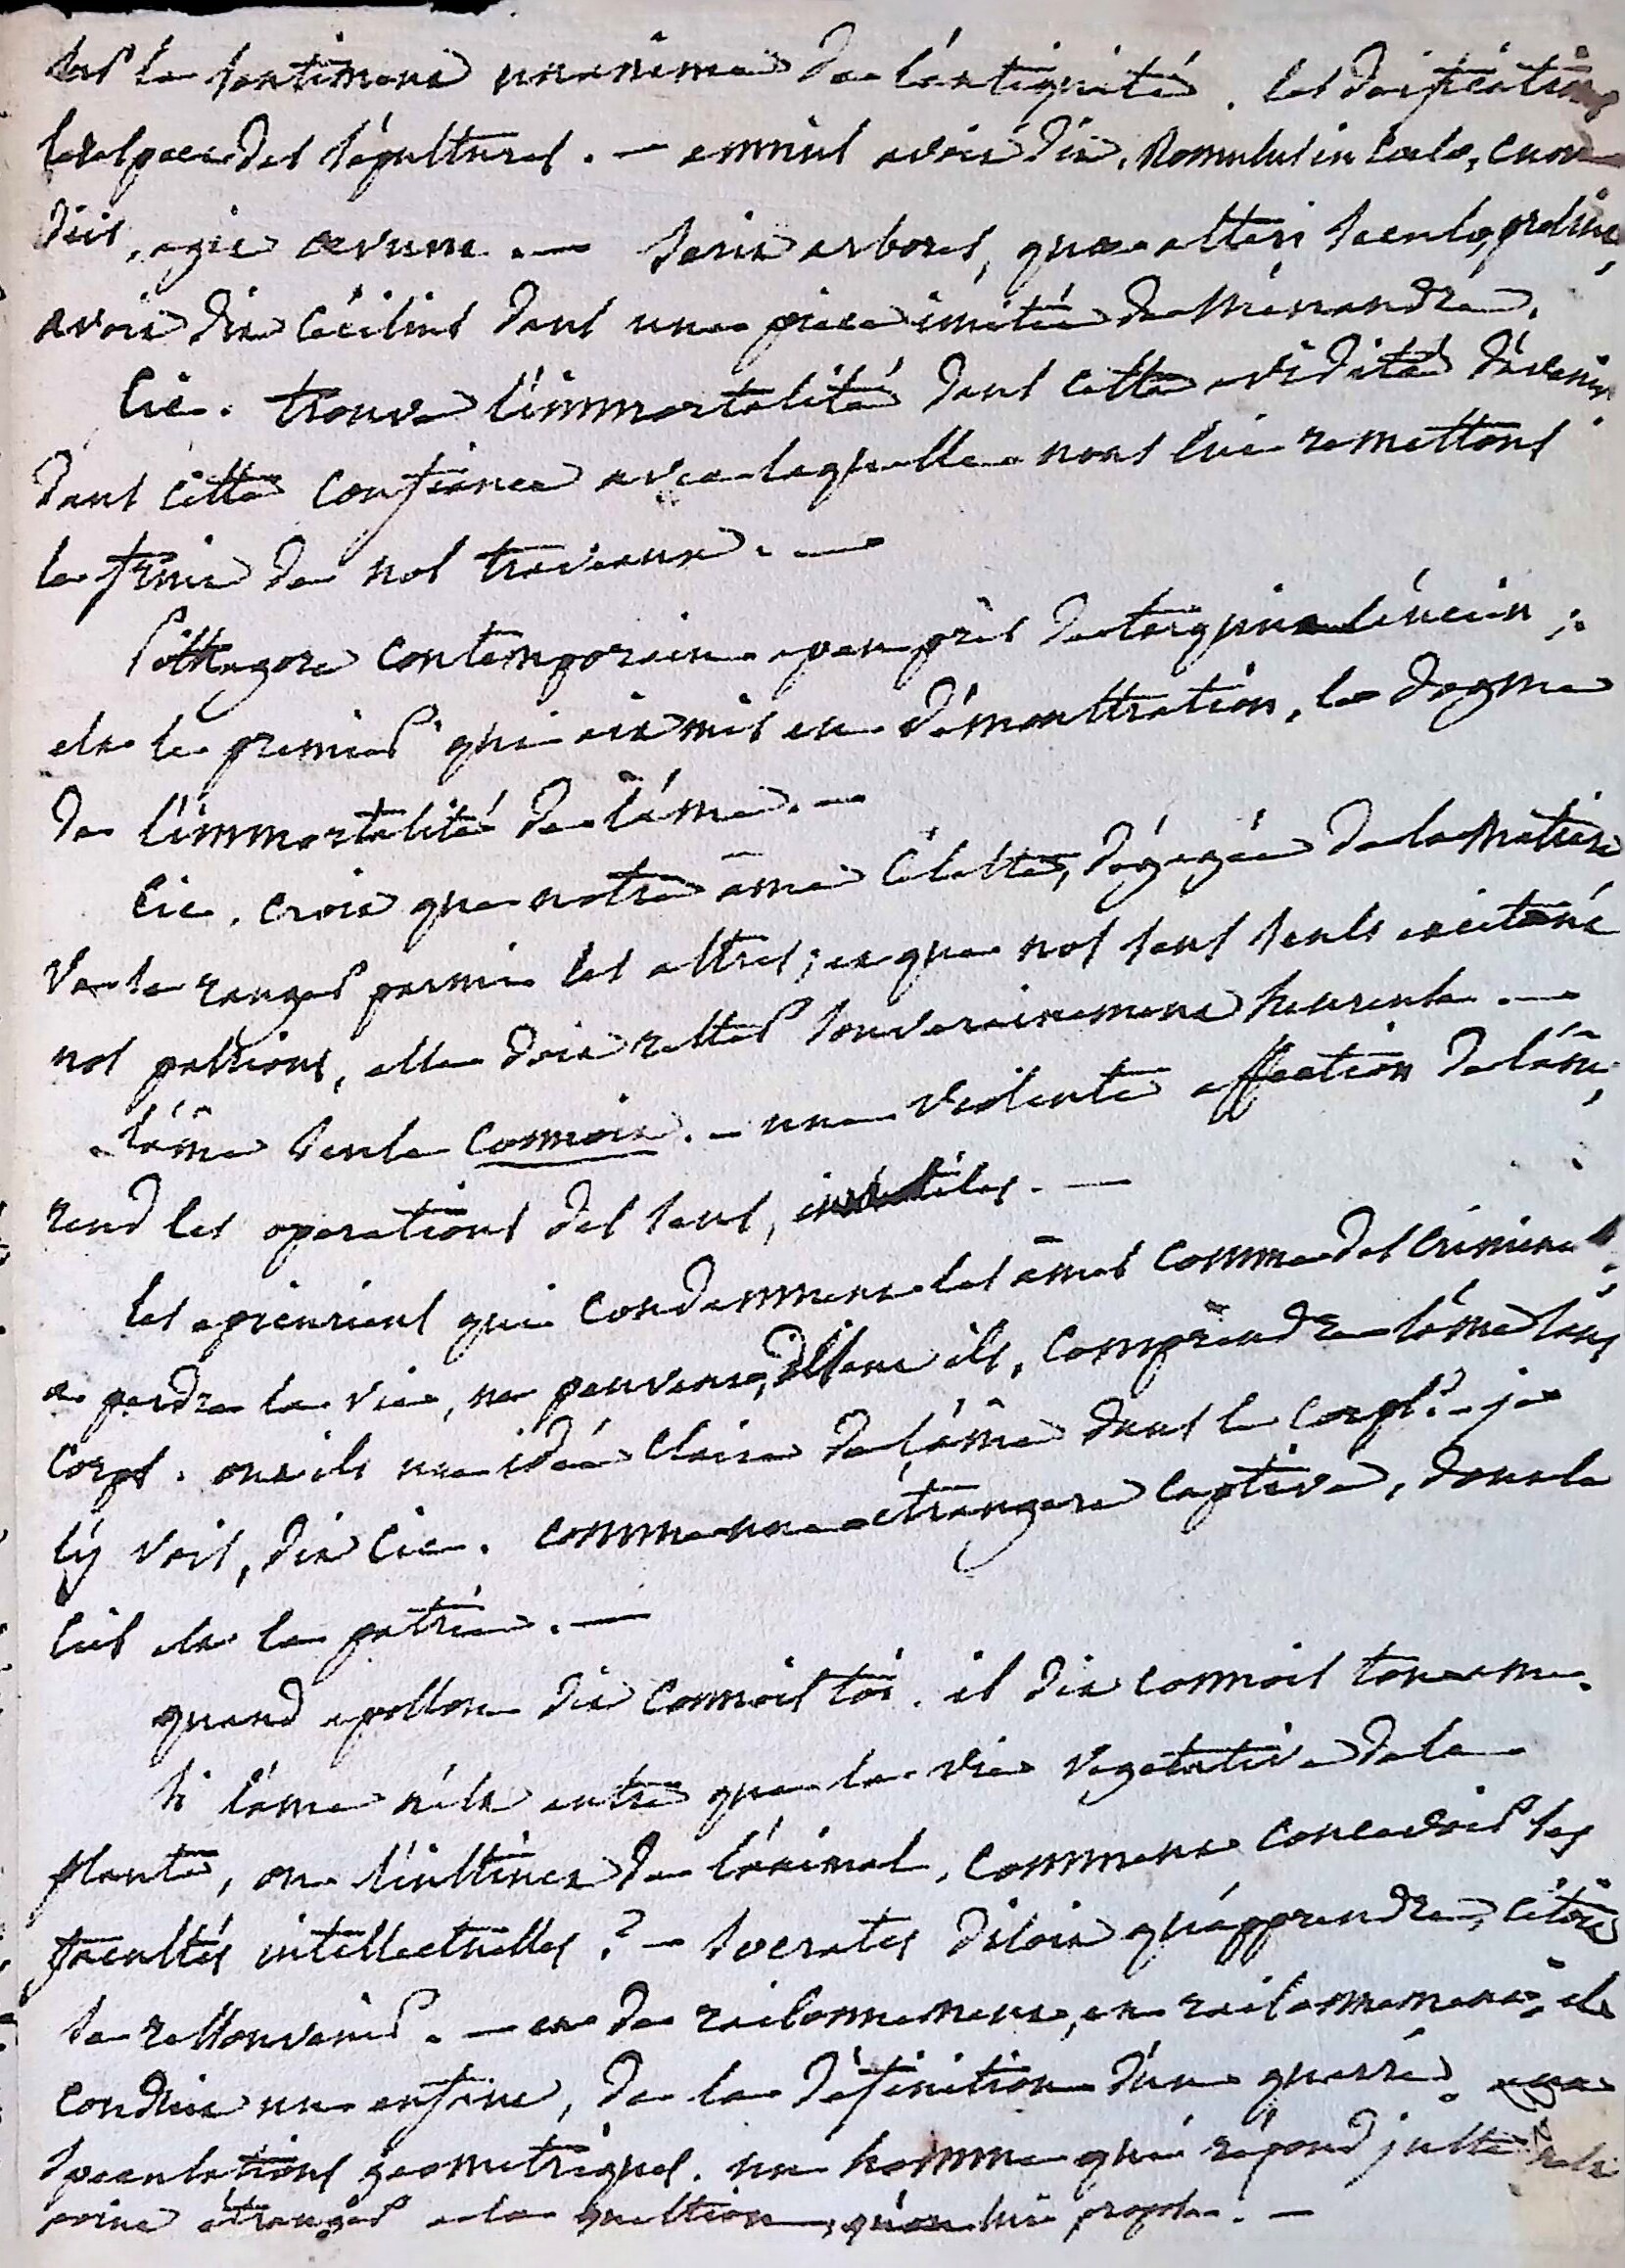 est le sentiment unanime de l'antiquité. les déifications
le respect des sépultures. — ennius avoit dit, Romulus in coelo, cum
diis, agit aevum. — serit arbores, quae alteri saeculo prosint,
avoit dit Cécilius dans une pièce imitée de Ménandre.
Cic. trouve l'immortalité dans cette avidité d'avenir
dans cette confiance avec laquelle nous lui remettons
le fruit de nos travaux. —
Pithagore contemporain a peu près de tarquin l'ancien;
est le premier qui ait mis en démonstration, le dogme
de l'immortalité de l'âme. —
Cic. croit que notre âme céleste, dégagée de la matière
va se ranger parmi les astres; et que nos sens seuls excitant
nos passions, elle doit rester souverainement heureuse. —
l'âme seule connoit. — une violente affection de l'âme,
rend les opérations des sens, inutiles. —
les epicuriens qui condamnent les âmes comme des criminels,
a perdre la vie, ne peuvent, disent ils, comprendre l'âme sans
corps. ont ils une idée claire de l'âme dans le corps? — je
l'y vois, dit Cic. comme une étrangere captive, dont le
ciel est la patrie. —
quand apollon dit connois toi. il dit connois ton ame.
si l'âme n'est autre que la vie vegetative de la
plante, ou l'instinct de l'animal, comment concevoir ses
facultés intellectuelles? — Socrates disoit qu'apprendre, c'étoit
se ressouvenir. — et de raisonnement, en raisonnement, il
conduit un enfant, de la définition d'un quarré, aux
spéculations géometriques. un homme qui répond juste n'est
point étranger a la question, qu'on lui propose. —